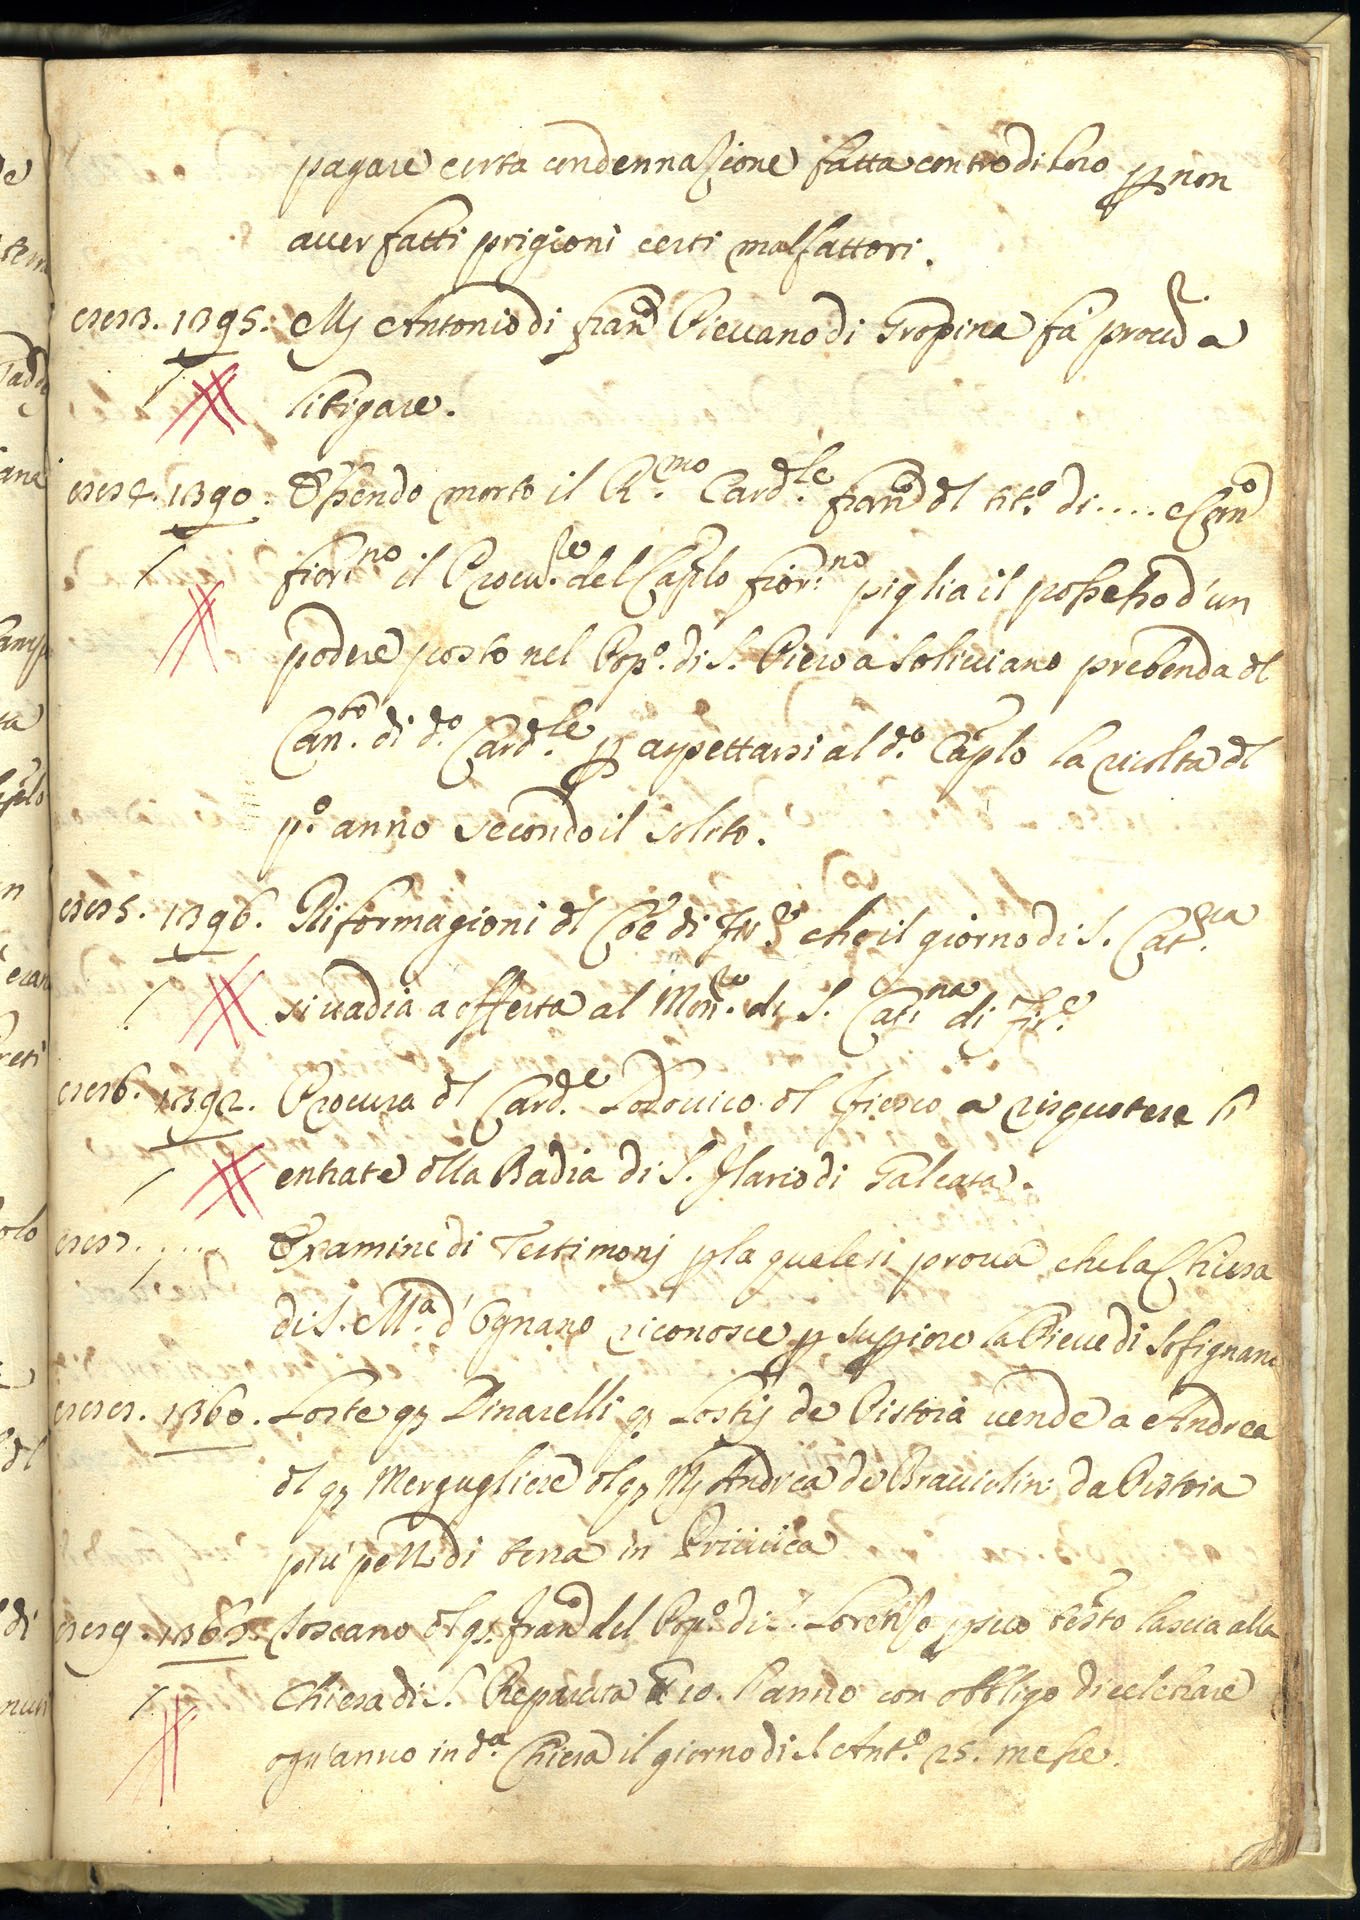 pagare certa condennazione fatta contro di loro p non
aver fatti prigioni certi malfattori.
1395. M Antonio di Fran.co Pievano di Gropina fa procu.a a
litigare.
1390. Essendo morto il R.mo Card.le Fran.co del tit.o di .... e Can.o
fior.no il Procu.re del Caplo fior.no piglia il possesso d'un
podere posto nel Pop.o di S. Piero a Soliciano prebenda del
Can.to di d.o Card.le p aspettarsi al d.o Caplo la ricolta del
p.o anno secondo il solito.
1396. Riformagioni del Coe di Fir.e che il giorno di S. Cat.rca
si vadia a offerta al Mon.ro di S. Cat.na di Fir.e
1392. Procura del Card.le Lodovico del Fiesco a risquotere l'
entrate della Badia di S. Ilario di Galeata.
..... Examine di Testimonj p la quale si prova che la Chiesa
di S. M.a d'Ognano riconosce p supiore la Pieve di Sofignano
1360. Loste q Dinarelli q Lostij de Pistoia vende a Andrea
del q Mergugliese del q M Andrea de Bracciolini da Pistoia
più pezzi di terra in
1365. Toscano del q. Fran.co del Pop.o di S. Lorenzo p suo testo lascia alla
Chiesa di S. Reparata 10. l'anno con obbligo di celebrare
ogn'anno in d.a Chiesa il giorno di S. Ant.o 25. messe.